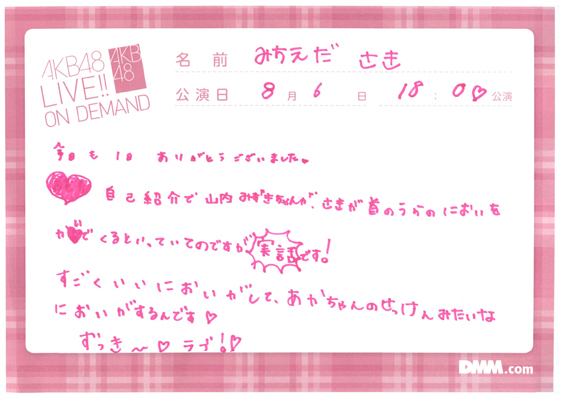 AKB48
LIVE!!
ON DEMAND
AKB
48
名前 みちえだ さき
公演日 8月6日 18:0♡公演
今日も1日 ありがとうございました。
♥ 自己紹介で山内みずきちゃんが、さきが首のうらのにおいを
か♥でくるといっていてのですが実話です!
すごくいいにおいがして、あかちゃんのせっけんみたいな
においがするんです♡
ずっき〜♡ラブ!♡
DMM.com